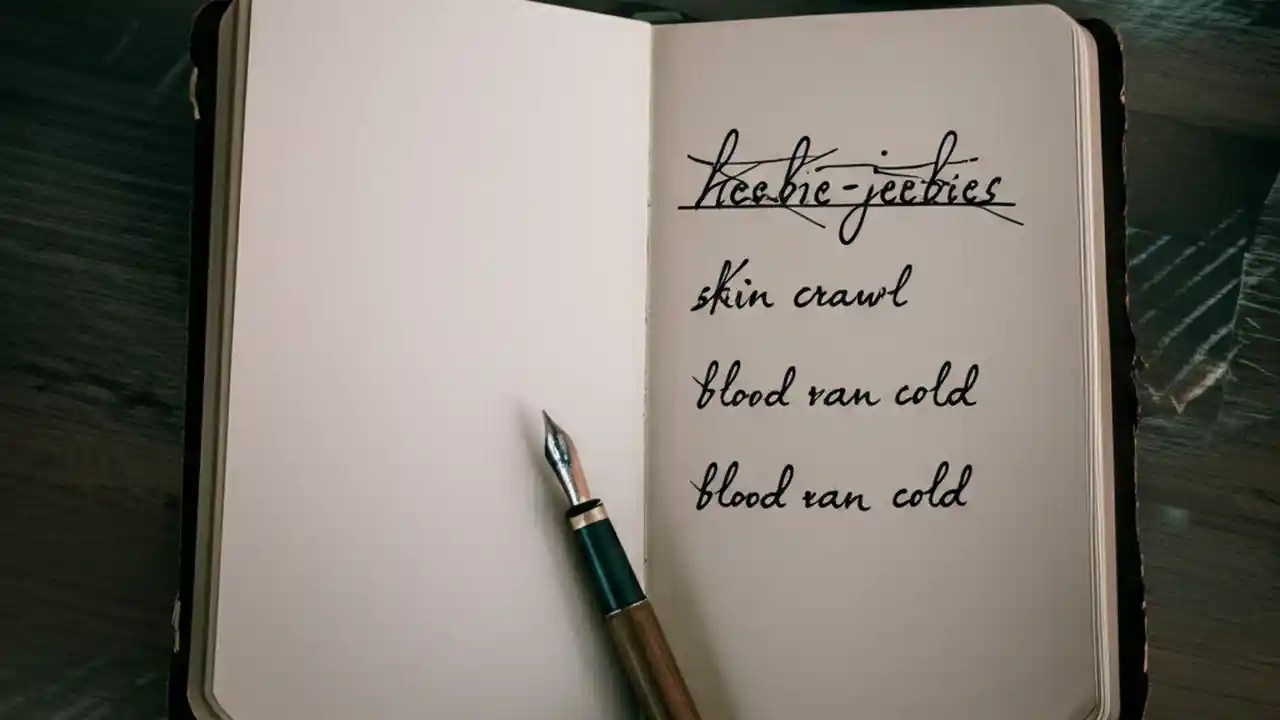 heebie-jeebies
skin crawl
blood ran cold
blood ran cold